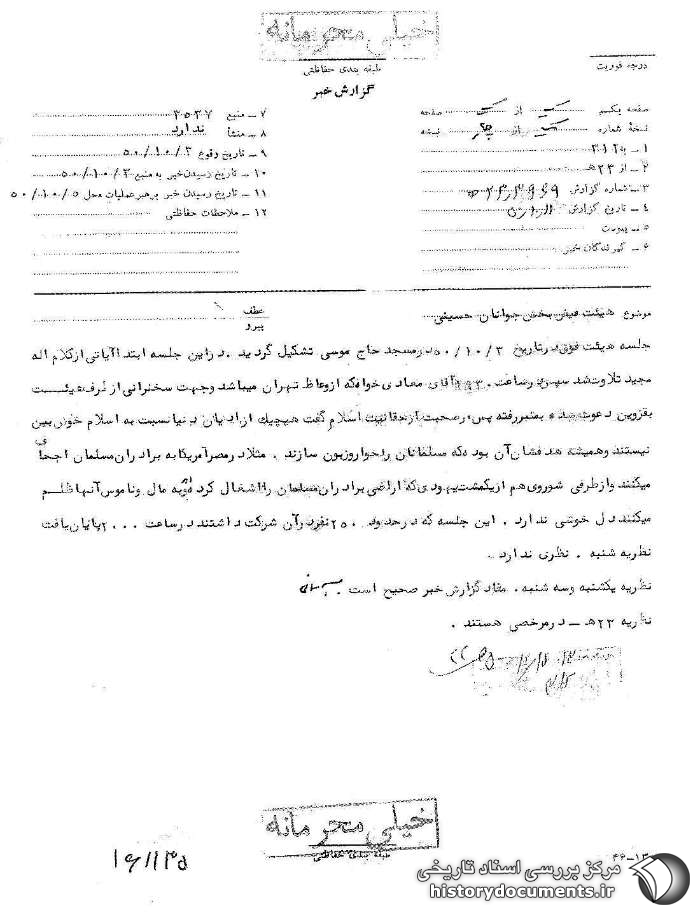 خیلی محرمانه
طبقه بندی حفاظتی
درجه فوریت
گزارش خبر
صفحه یک از یک صفحه
نسخهٔ شماره یک از چهار نسخه
۱ ـ به ۳۱۲
۲ ـ از ۲۳هـ
۳ ـ شماره گزارش
۴ ـ تاریخ گزارش
۵ ـ پیوست
۶ ـ گیرندگان خبر
۷ ـ منبع ۳۵۳۷
۸ ـ منشأ ندارد
۹ ـ تاریخ وقوع ۵۰/۱۰/۳
۱۰ ـ تاریخ رسیدن خبر به منبع ۵۰/۱۰/۳
۱۱ ـ تاریخ رسیدن خبر به رهبر عملیات محل ۵۰/۱۰/۵
۱۲ ـ ملاحظات حفاظتی
موضوع هیئت جوانان حسینی
عطف
پیرو
جلسه هیئت فوق در تاریخ ۵۰/۱۰/۳ در مسجد حاج موسی تشکیل گردید . در این جلسه ابتدا آیاتی از کلام اله
مجید تلاوت شد سپس در ساعت آقای معادیخواه که از وعاظ تهران میباشد و جهت سخنرانی از طرف هیئت
بقزوین دعوت شده بمنبر رفته پس از صحبت از حقانیت اسلام گفت هیچیک از ادیان دنیا نسبت به اسلام خوش بین
نیستند و همیشه هدفشان آن بوده که مسلمانان را خوار و زبون سازند . مثلا در مصر آمریکا به برادران مسلمان اجحاف
میکنند و از طرفی شوروی هم از یکمشت یهودی که اراضی برادران مسلمان را اشغال کرده و به مال و ناموس آنها ظلم
میکنند دل خوشی ندارد . این جلسه که در حدود ۲۵۰ نفر در آن شرکت داشتند در ساعت ۲۰۰۰ پایان یافت
نظریه شنبه . نظری ندارد .
نظریه یکشنبه و سه شنبه . مفاد گزارش خبر صحیح است .
نظریه ۲۳هـ ـ در مرخصی هستند .
خیلی محرمانه
طبقه بندی حفاظتی
مرکز بررسی اسناد تاریخی
historydocuments.ir